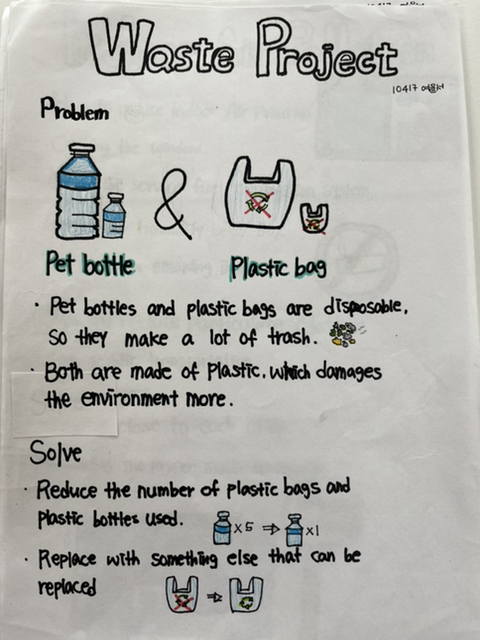 Waste Project
10417
Problem
&
Pet bottle
Plastic bag
· Pet bottles and plastic bags are disposable,
so they make a lot of trash.
· Both are made of plastic, which damages
the environment more.
Solve
· Reduce the number of plastic bags and
plastic bottles used. x5 ⇒ x1
· Replace with something else that can be
replaced ⇒